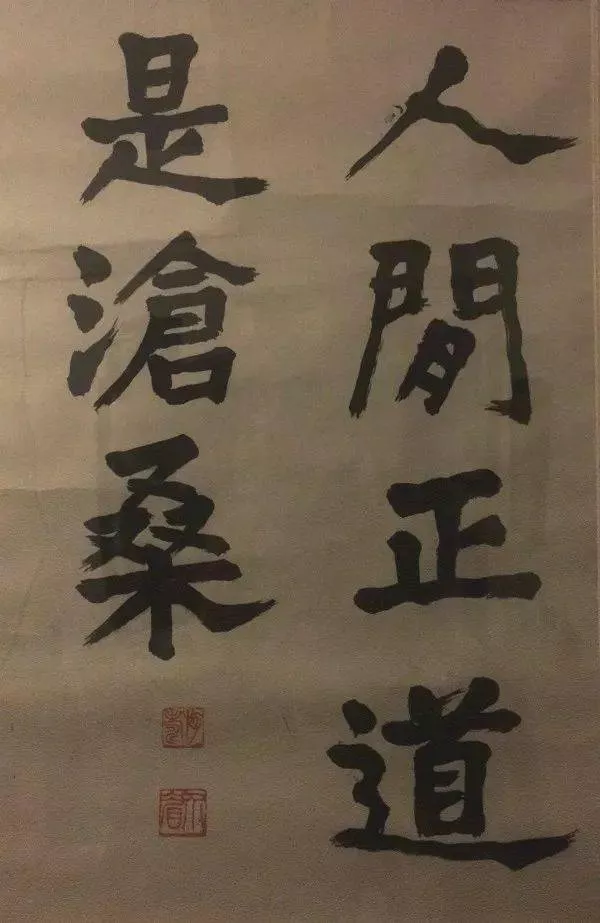 人閒正道
是滄桑